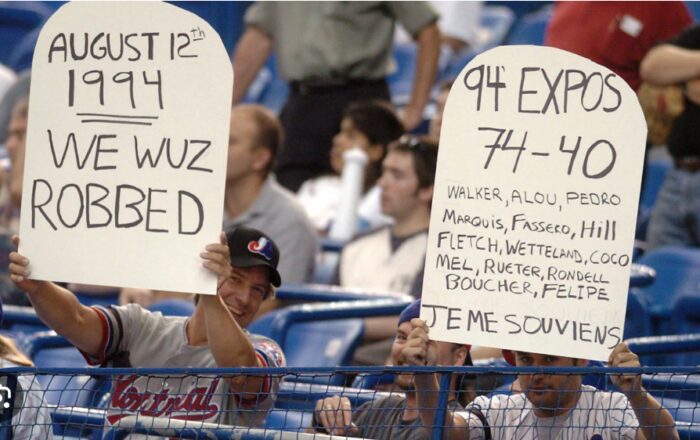 AUGUST 12th
1994
WE WUZ
ROBBED
94 EXPOS
74-40
WALKER, ALOU, PEDRO
MARQUIS, FASSERO, HILL
FLETCH, WETTELAND, COCO
MEL, RUETER, RONDELL
BOUCHER, FELIPE
JE ME SOUVIENS
Montréal